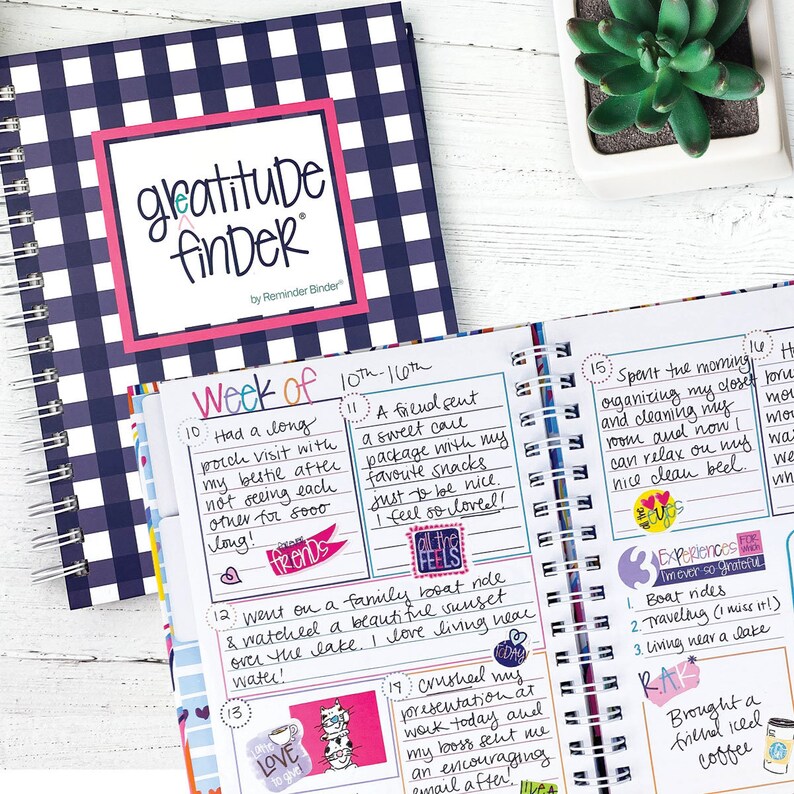 greatitude
finder®
by Reminder Binder®
Week of 10th-16th
10 Had a long
porch visit with
my bestie after
not seeing each
other for sooo
long!
forever
FRIENDS
11 A friend sent
a sweet care
package with my
favorite snacks
just to be nice.
I feel so loved!
all the
FEELS
12 Went on a family boat ride
& watched a beautiful sunset
over the lake. I love living near
water!
TODAY
13
latte
LOVE
to give!
14 Crushed my
presentation at
work today and
my boss sent me
an encouraging
email after!
15 Spent the morning
organizing my closet
and cleaning my
room and now I
can relax on my
nice clean bed.
all the
eyes
16
3 Experiences FOR which
I'm ever-so-grateful
1. Boat rides
2. Traveling (I miss it!)
3. Living near a lake
R.A.K*
Brought a
friend iced
coffee